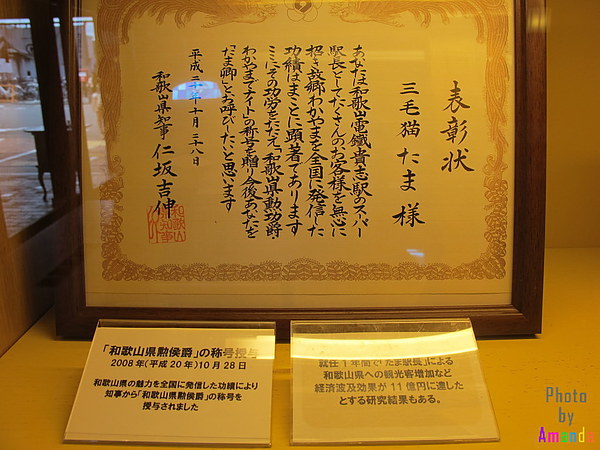 表彰状
三毛猫 たま 様
あなたは和歌山電鐵貴志駅のスーパー
駅長としてたくさんのお客様を無心に
招き故郷わかやまを全国に発信した
功績はまことに顕著であります
ここにその功労をたたえ「和歌山県勲功爵
わかやまでナイト」の称号を贈り今後あなたを
「たま卿」とお呼びしたいと思います
平成二十年十月二十八日
和歌山県知事 仁坂吉伸
「和歌山県勲侯爵」の称号授与
2008年(平成20年)10月28日
和歌山県の魅力を全国に発信した功績により
知事から「和歌山県勲侯爵」の称号を
授与されました
就任1年間で「たま駅長」による
和歌山県への観光客増加など
経済波及効果が11億円に達した
とする研究結果もある。
Photo
by
Amanda